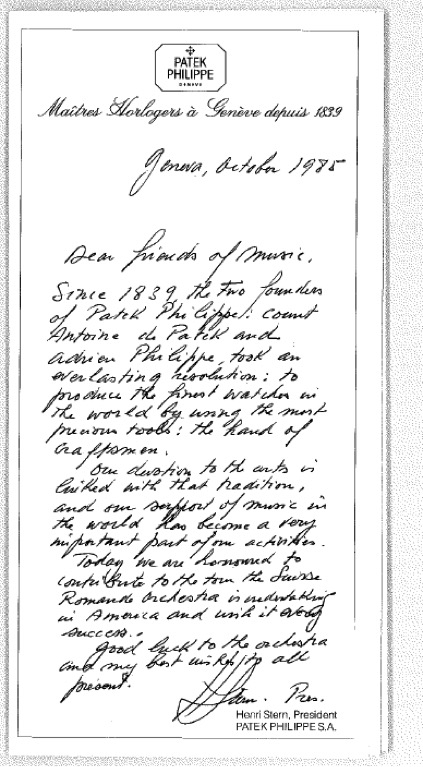 PATEK
PHILIPPE
GENEVE
Maîtres Horlogers à Genève depuis 1839
Geneva, October 1985
Dear friends of music,
Since 1839, the two founders
of Patek Philippe: count
Antoine de Patek and
Adrien Philippe, took an
everlasting resolution: to
produce the finest watches in
the world by using the most
precious tools: the hand of
craftsmen.
Our devotion to the arts is
linked with that tradition,
and our support of music in
the world has become a very
important part of our activities.
Today we are honoured to
contribute to the tour the Suisse
Romande Orchestra is undertaking
in America and wish it every
success.
Good luck to the orchestra
and my best wishes to all
present.
H Stern. Pres.
Henri Stern, President
PATEK PHILIPPE S.A.